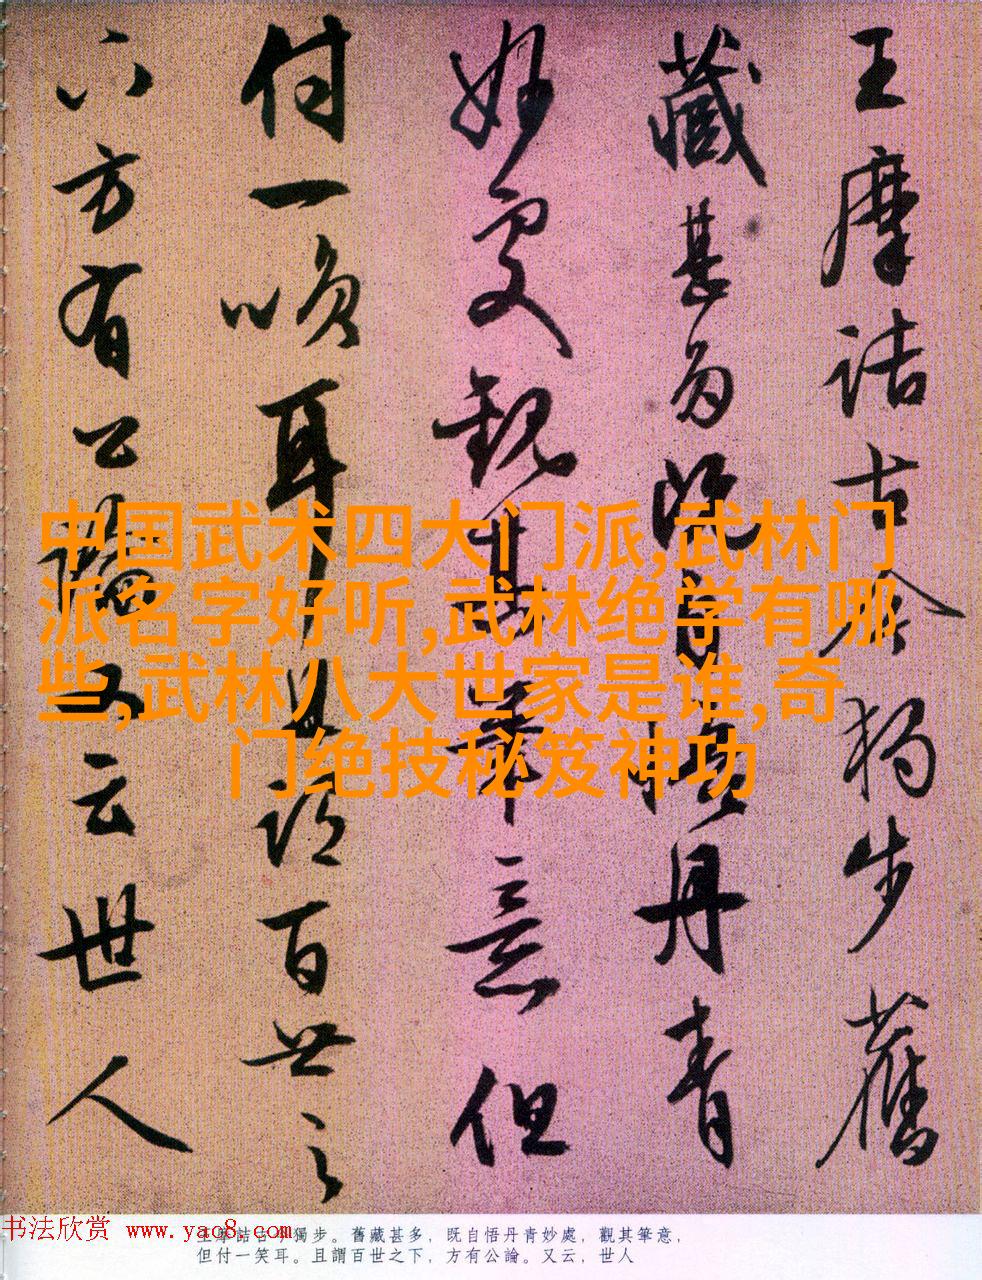 王摩詰古今独步舊
藏甚多既自悟丹青
妙處觀其筆意但
付一唤耳且謂百世之
下方有公論又云世人
中国武术四大门派,武林门
派名字好听,武林绝学有哪
些,武林八大世家是谁,奇
门绝技秘笈神功
书法欣赏 www.yac8.com
王摩詰古今獨步。舊藏甚多，既自悟丹青妙處，觀其筆意，
但付一笑耳。且謂百世之下，方有公論。又云，世人